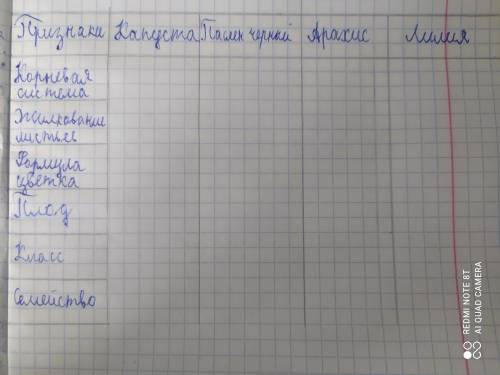 Признаки Капуста Паслен черный Арахис Лилия
Корневая
система
Жилкование
листьев
Формула
цветка
Плод
Класс
Семейство
REDMI NOTE 8T
AI QUAD CAMERA